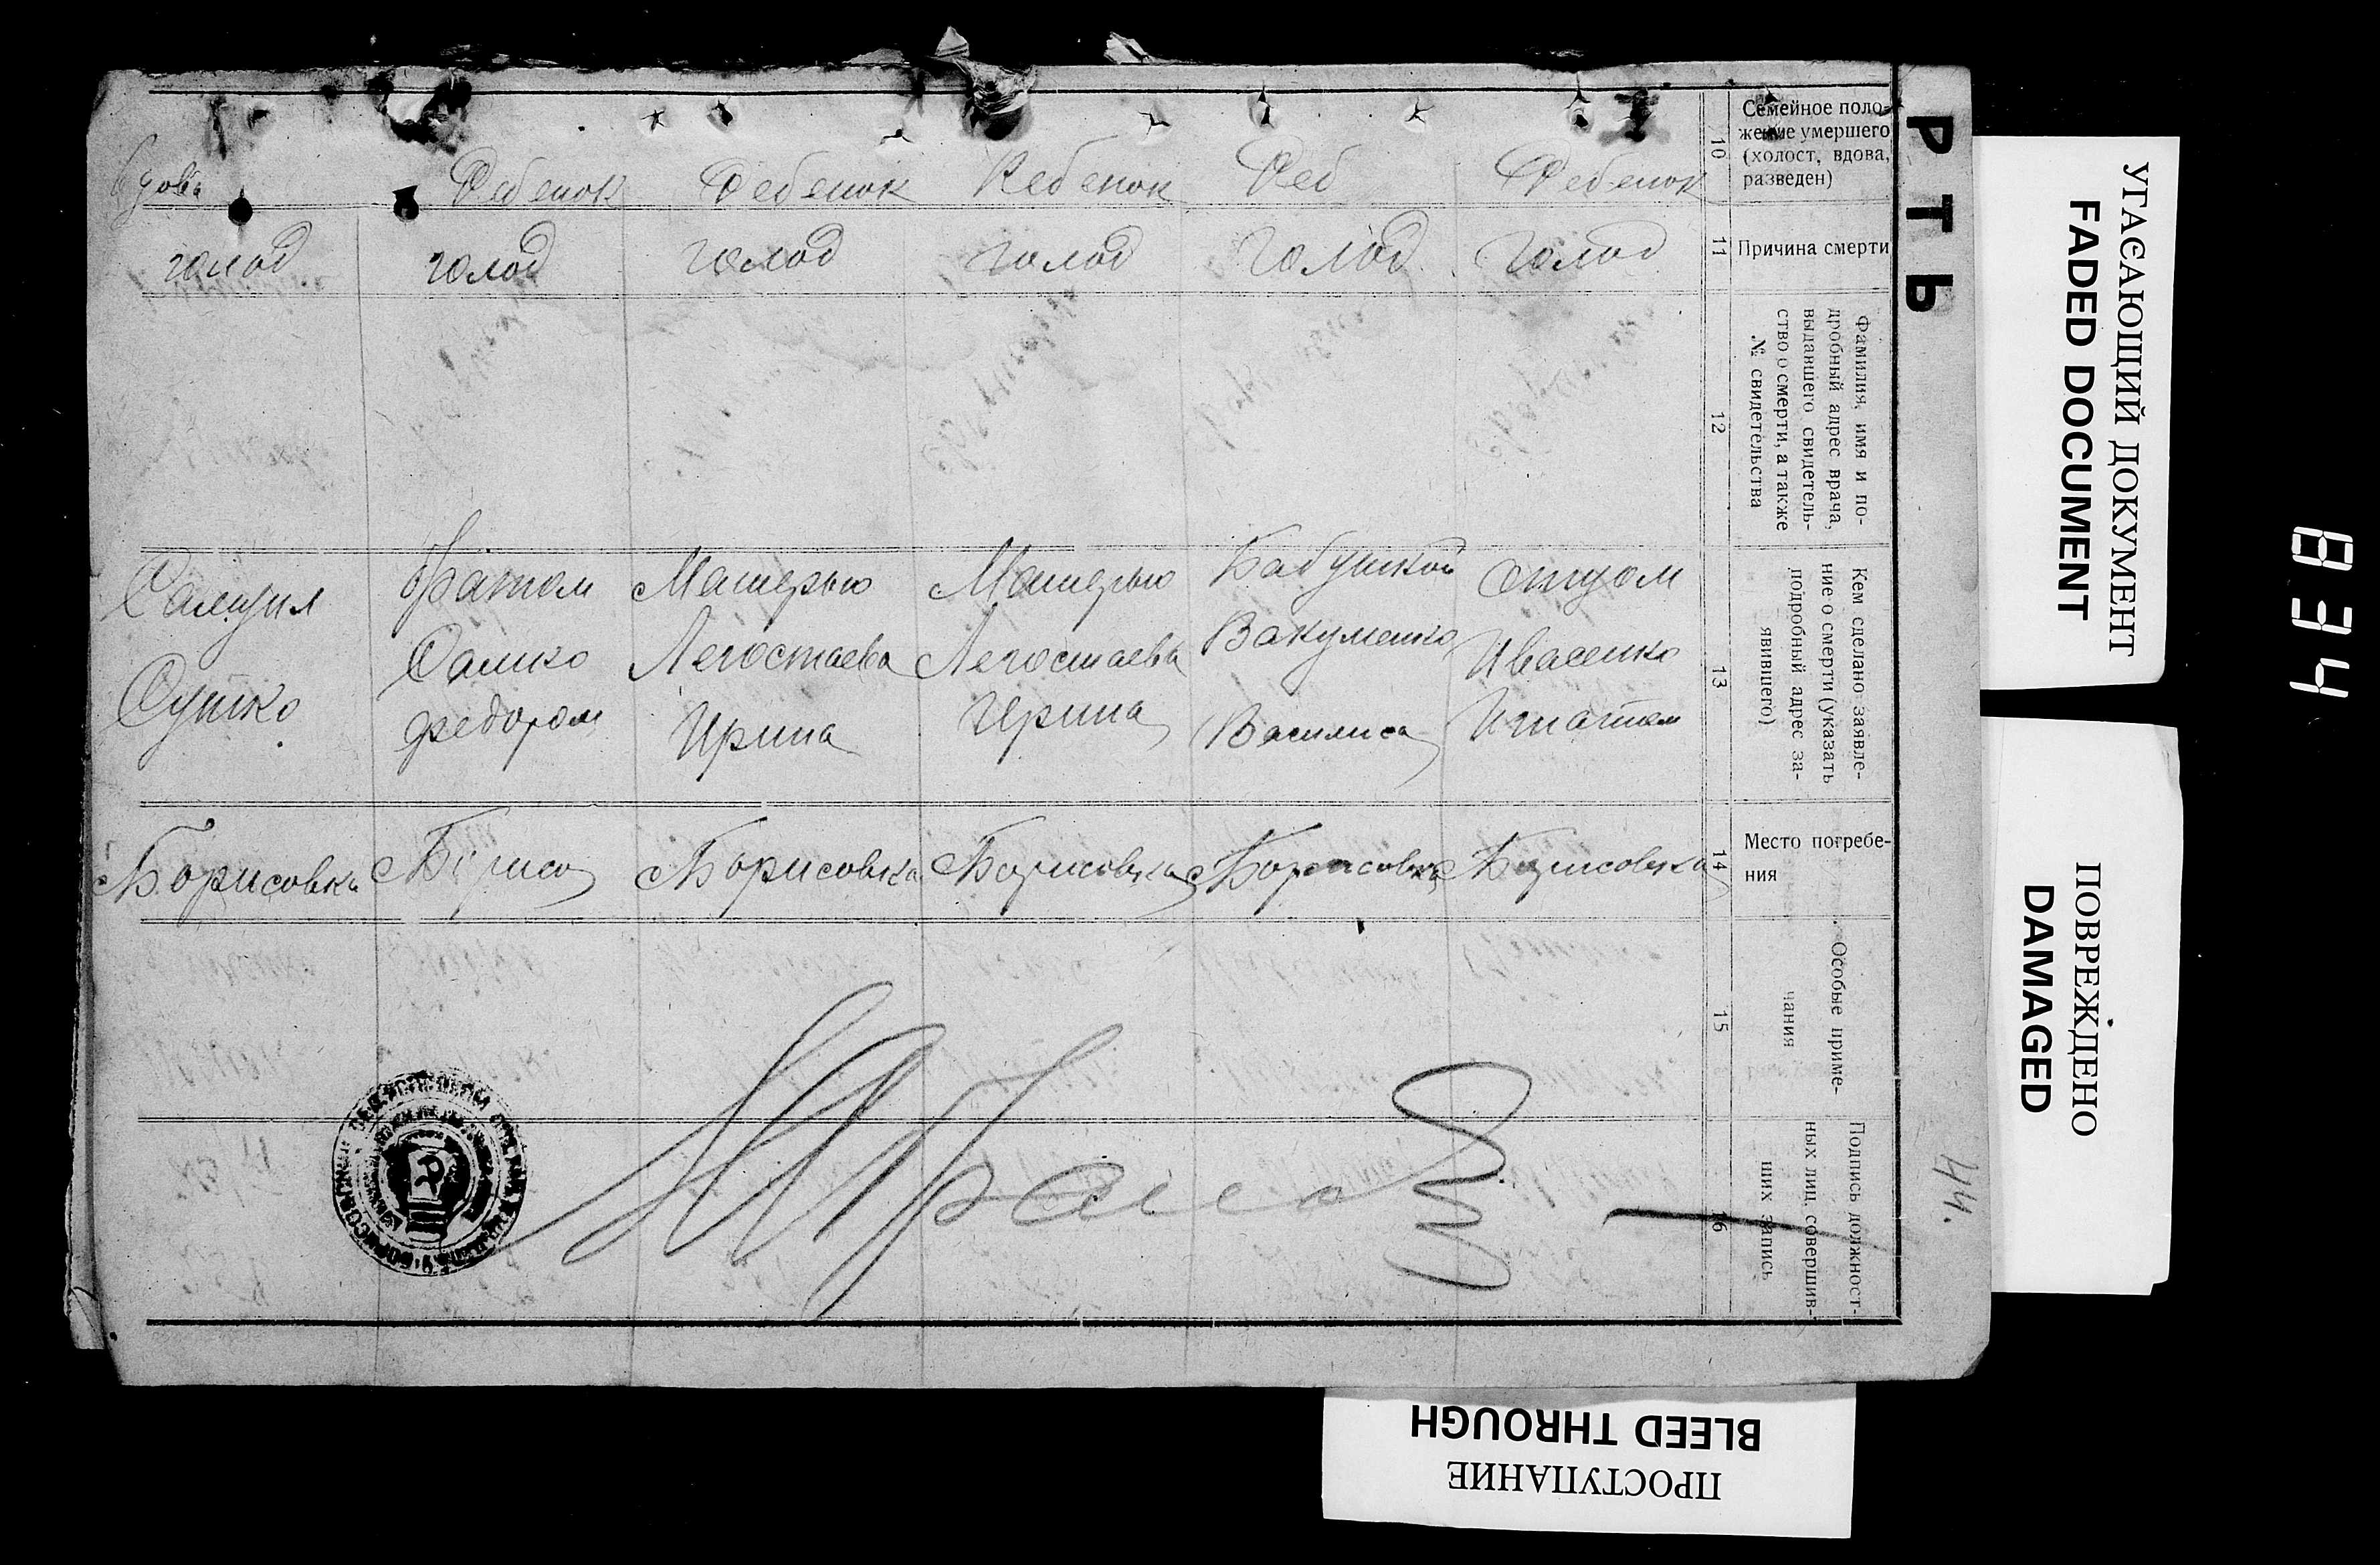 РТЬ
Семейное поло-
жение умершего
(холост, вдова,
разведен)
10
вдова
Ребенок
Ребенок
Ребенок
Реб
Ребенок
Причина смерти
11
голод
голод
голод
голод
голод
голод
Фамилия, имя и по-
дробный адрес врача,
выдавшего свидетель-
ство о смерти, а также
№ свидетельства
12
Кем сделано заявле-
ние о смерти (указать
подробный адрес за-
явившего)
13
Сушко
братом
Сашко
Федором
Матерью
Легостаева
Ирина
Матерью
Легостаева
Ирина
Бабушкой
Вакуленко
Василиса
отцом
Ивасенко
Игнатом
Место погребе-
ния
14
с Борисовка
с Борисо
с Борисовка
с Борисовка
с Борисовка
с Борисовка
Особые приме-
чания
15
Подпись должност-
ных лиц, совершив-
ших запись
16
44.
УГАСАЮЩИЙ ДОКУМЕНТ
FADED DOCUMENT
ПОВРЕЖДЕНО
DAMAGED
ПРОСТУПАНИЕ
BLEED THROUGH
834